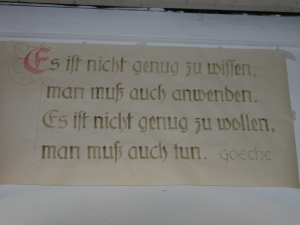 Es ist nicht genug zu wissen,
man muß auch anwenden.
Es ist nicht genug zu wollen,
man muß auch tun. GOETHE